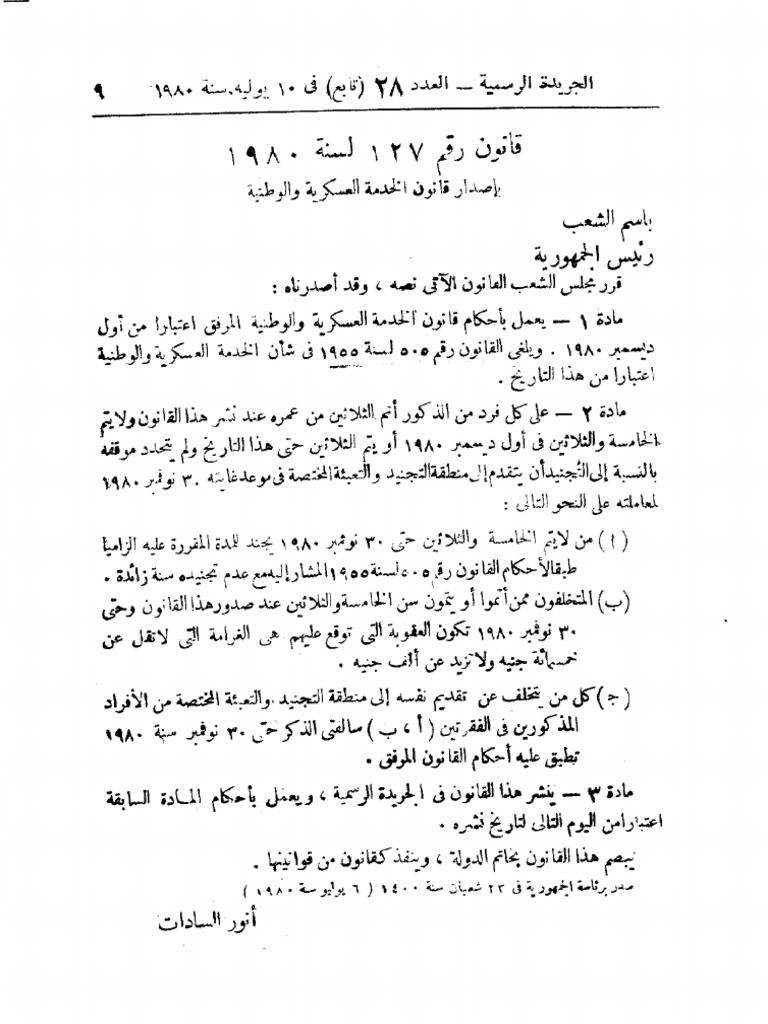 الجريدة الرسمية – العدد ٢٨ (تابع) فى ١٠ يوليه سنة ١٩٨٠ ٩
قانون رقم ١٢٧ لسنة ١٩٨٠
بإصدار قانون الخدمة العسكرية والوطنية
باسم الشعب
رئيس الجمهورية
قرر مجلس الشعب القانون الآتى نصه ، وقد أصدرناه :
مادة ١ – يعمل بأحكام قانون الخدمة العسكرية والوطنية المرفق اعتبارا من أول
ديسمبر ١٩٨٠ . ويلغى القانون رقم ٥٠٥ لسنة ١٩٥٥ فى شأن الخدمة العسكرية والوطنية
اعتبارا من هذا التاريخ .
مادة ٢ – على كل فرد من الذكور أتم الثلاثين من عمره عند نشر هذا القانون ولا يتم
الخامسة والثلاثين فى أول ديسمبر ١٩٨٠ أو يتم الثلاثين حتى هذا التاريخ ولم يتحدد موقفه
بالنسبة إلى التجنيد أن يتقدم إلى منطقة التجنيد والتعبئة المختصة فى موعد غايته ٣٠ نوفمبر ١٩٨٠
لمعاملته على النحو التالى :
(ا) من لايتم الخامسة والثلاثين حتى ٣٠ نوفمبر ١٩٨٠ يجند للمدة المقررة عليه الزاميا
طبقا لأحكام القانون رقم ٥٠٥ لسنة ١٩٥٥ المشار إليه مع عدم تجنيده سنة زائدة .
(ب) المتخلفون ممن أتموا أو يتمون سن الخامسة والثلاثين عند صدور هذا القانون وحتى
٣٠ نوفمبر ١٩٨٠ تكون العقوبة التى توقع عليهم هى الغرامة التى لاتقل عن
خمسمائة جنيه ولا تزيد عن ألف جنيه .
(ج) كل من يتخلف عن تقديم نفسه إلى منطقة التجنيد والتعبئة المختصة من الأفراد
المذكورين فى الفقرتين (أ ، ب) سالفتى الذكر حتى ٣٠ نوفمبر سنة ١٩٨٠
تطبق عليه أحكام القانون الموفق .
مادة ٣ – ينشر هذا القانون فى الجريدة الرسمية ، ويعمل بأحكام المادة السابقة
اعتبارا من اليوم التالى لتاريخ نشره .
يبصم هذا القانون بخاتم الدولة ، وينفذ كقانون من قوانينها .
صدر برئاسة الجمهورية فى ٢٣ شعبان سنة ١٤٠٠ (٦ يوليو سنة ١٩٨٠)
أنور السادات